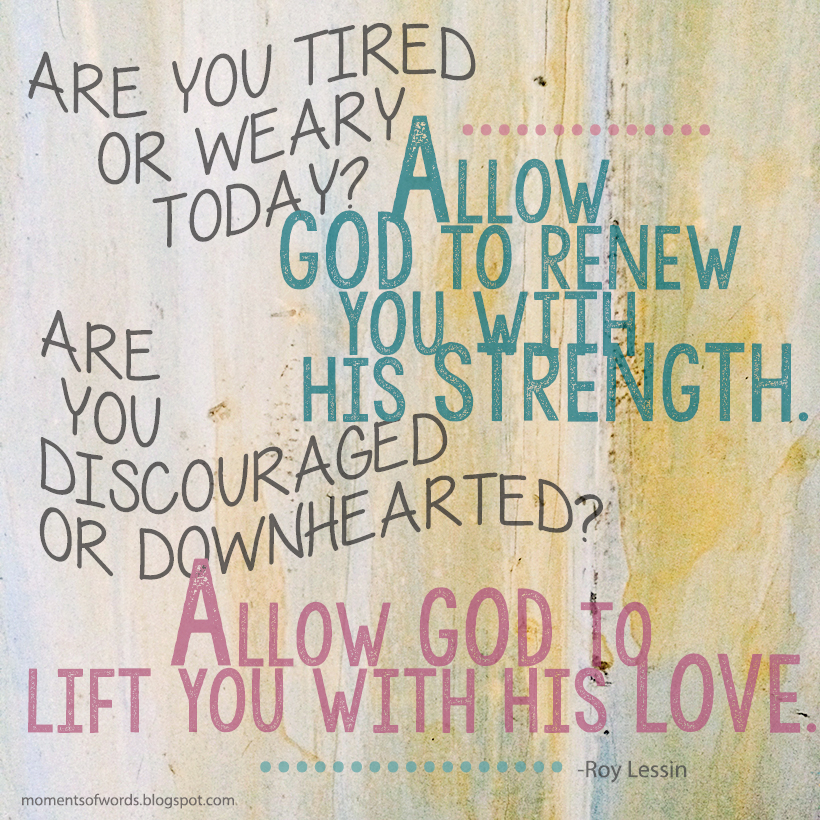 ARE YOU TIRED
OR WEARY
TODAY?
ALLOW
GOD TO RENEW
YOU WITH
HIS STRENGTH.
ARE
YOU
DISCOURAGED
OR DOWNHEARTED?
ALLOW GOD TO
LIFT YOU WITH HIS LOVE.
-Roy Lessin
momentsofwords.blogspot.com